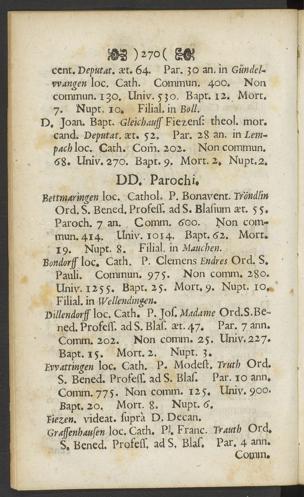 )270(
cent. Deputat. æt. 64. Par. 30 an. in Gündel-
vvangen loc. Cath. Commun. 400. Non
commun. 130. Univ. 530. Bapt. 12. Mort.
7. Nupt. 10. Filial. in Boll.
D. Joan. Bapt. Gleichauff Fiezensf: theol. mor.
cand. Deputat. æt. 52. Par. 28 an. in Lem-
pach loc. Cath. Com. 202. Non commun.
68. Univ. 270. Bapt. 9. Mort. 2. Nupt. 2.
DD. Parochi.
Bettmaringen loc. Cathol. P. Bonavent. Tröndlin
Ord. S. Bened. Profess. ad S. Blasium æt. 55.
Paroch. 7 an. Comm. 600. Non com-
mun. 414. Univ. 1014. Bapt. 62. Mort.
19. Nupt. 8. Filial. in Mauchen.
Bondorff loc. Cath. P. Clemens Endres Ord. S.
Pauli. Commun. 975. Non comm. 280.
Univ. 1255. Bapt. 25. Mort. 9. Nupt. 10.
Filial. in Wellendingen.
Dillendorff loc. Cath. P. Jos. Madame Ord. S. Be-
ned. Profess. ad S. Blas. æt. 47. Par. 7 ann.
Comm. 202. Non comm. 25. Univ. 227.
Bapt. 15. Mort. 2. Nupt. 3.
Evvattingen loc. Cath. P. Modest. Truth Ord.
S. Bened. Profess. ad S. Blas. Par. 10 ann.
Comm. 775. Non comm. 125. Univ. 900.
Bapt. 20. Mort. 8. Nupt. 6.
Fiezen. videat. suprà D. Decan.
Graffenhausen loc. Cath. Pl. Franc. Trauth Ord.
S. Bened. Profess. ad S. Blas. Par. 4 ann.
Comm.